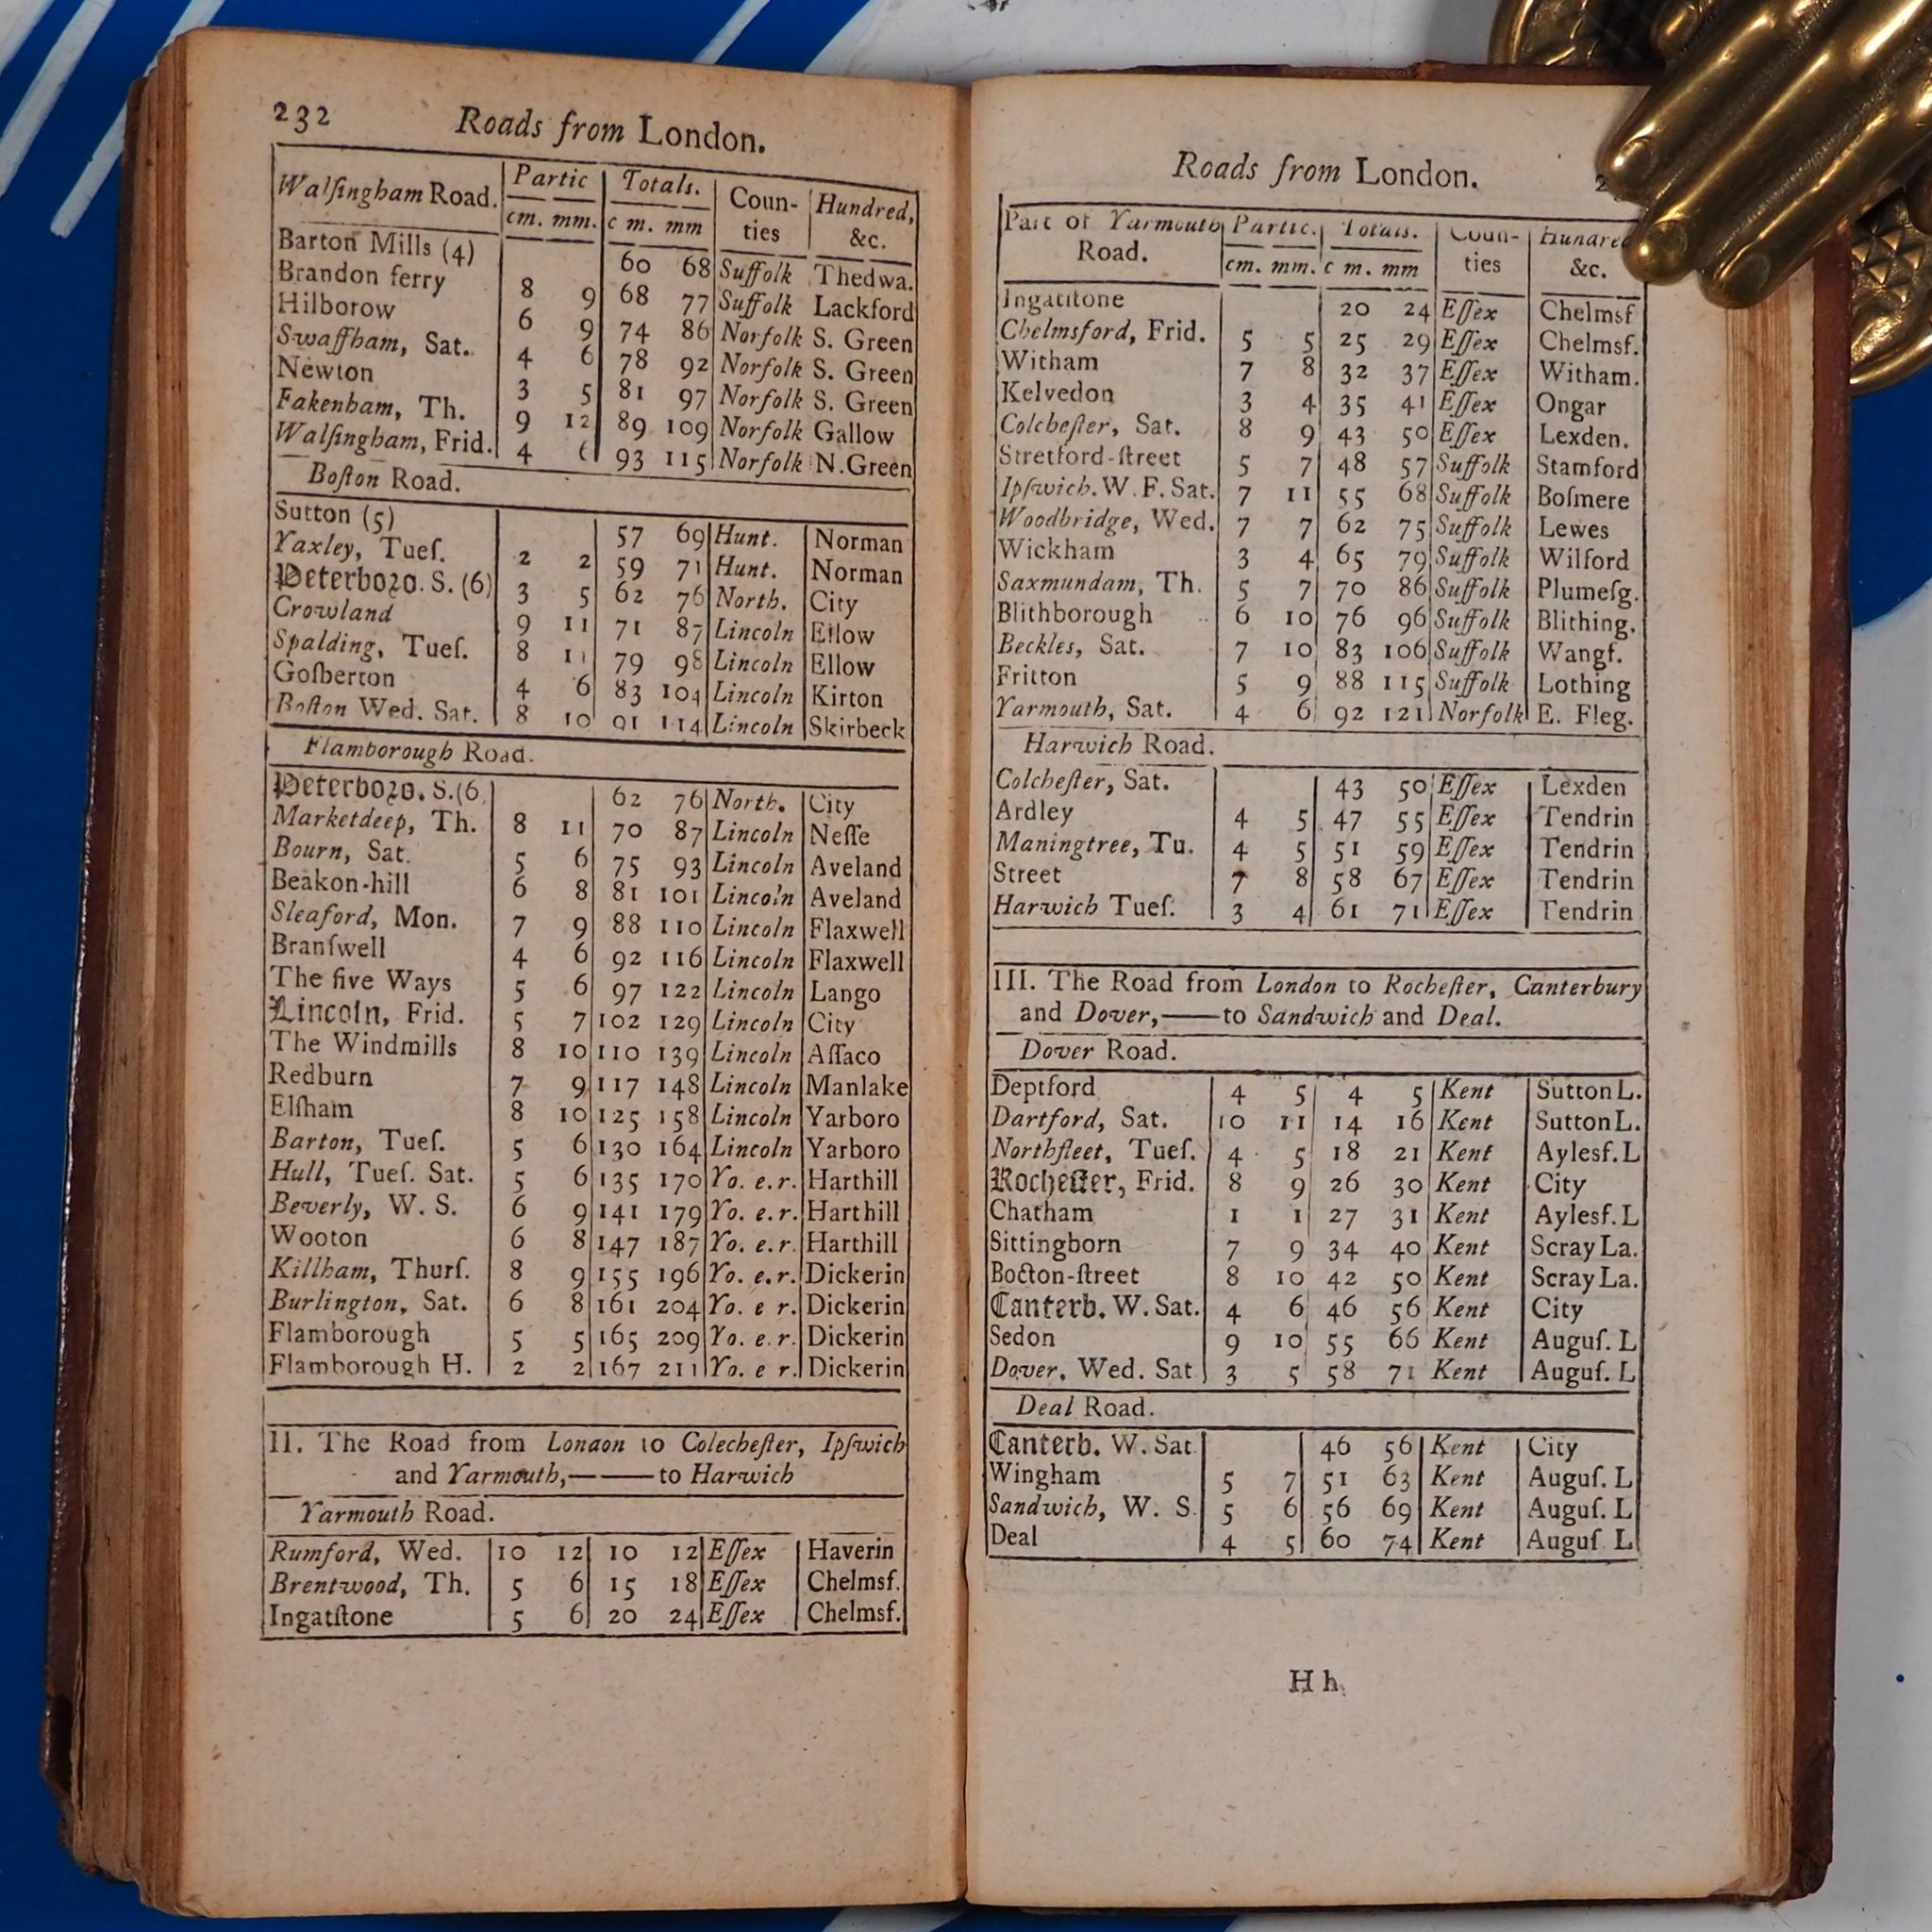 232 Roads from London.
Walſingham Road. Partic Totals. Coun- Hundred,
cm. mm. c m. mm ties &c.
Barton Mills (4) 60 68 Suffolk Thedwa.
Brandon ferry 8 9 68 77 Suffolk Lackford
Hilborow 6 9 74 86 Norfolk S. Green
Swaffham, Sat. 4 6 78 92 Norfolk S. Green
Newton 3 5 81 97 Norfolk S. Green
Fakenham, Th. 9 12 89 109 Norfolk Gallow
Walſingham, Frid. 4 6 93 115 Norfolk N.Green
Boſton Road.
Sutton (5) 57 69 Hunt. Norman
Yaxley, Tueſ. 2 2 59 71 Hunt. Norman
Peterboro. S. (6) 3 5 62 76 North. City
Crowland 9 11 71 87 Lincoln Ellow
Spalding, Tueſ. 8 11 79 98 Lincoln Ellow
Goſberton 4 6 83 104 Lincoln Kirton
Boſton Wed. Sat. 8 10 91 114 Lincoln Skirbeck
Flamborough Road.
Peterboro. S.(6 62 76 North. City
Marketdeep, Th. 8 11 70 87 Lincoln Neſſe
Bourn, Sat. 5 6 75 93 Lincoln Aveland
Beakon-hill 6 8 81 101 Lincoln Aveland
Sleaford, Mon. 7 9 88 110 Lincoln Flaxwell
Branſwell 4 6 92 116 Lincoln Flaxwell
The five Ways 5 6 97 122 Lincoln Lango
Lincoln, Frid. 5 7 102 129 Lincoln City
The Windmills 8 10 110 139 Lincoln Aſſaco
Redburn 7 9 117 148 Lincoln Manlake
Elſham 8 10 125 158 Lincoln Yarboro
Barton, Tueſ. 5 6 130 164 Lincoln Yarboro
Hull, Tueſ. Sat. 5 6 135 170 Yo. e.r. Harthill
Beverly, W. S. 6 9 141 179 Yo. e.r. Harthill
Wooton 6 8 147 187 Yo. e.r. Harthill
Killham, Thurſ. 8 9 155 196 Yo. e.r. Dickerin
Burlington, Sat. 6 8 161 204 Yo. e r. Dickerin
Flamborough 5 5 165 209 Yo. e.r. Dickerin
Flamborough H. 2 2 167 211 Yo. e r. Dickerin
II. The Road from London to Colecheſter, Ipſwich
and Yarmouth,——to Harwich
Yarmouth Road.
Rumford, Wed. 10 12 10 12 Eſſex Haverin
Brentwood, Th. 5 6 15 18 Eſſex Chelmsf.
Ingatſtone 5 6 20 24 Eſſex Chelmsf.
Roads from London. 2
Part of Yarmouth Partic. Totals. Coun- Hundred
Road. cm. mm. c m. mm ties &c.
Ingatſtone 20 24 Eſſex Chelmsf
Chelmsford, Frid. 5 5 25 29 Eſſex Chelmsf.
Witham 7 8 32 37 Eſſex Witham.
Kelvedon 3 4 35 41 Eſſex Ongar
Colcheſter, Sat. 8 9 43 50 Eſſex Lexden.
Stretford-ſtreet 5 7 48 57 Suffolk Stamford
Ipſwich. W. F. Sat. 7 11 55 68 Suffolk Boſmere
Woodbridge, Wed. 7 7 62 75 Suffolk Lewes
Wickham 3 4 65 79 Suffolk Wilford
Saxmundam, Th. 5 7 70 86 Suffolk Plumeſg.
Blithborough 6 10 76 96 Suffolk Blithing.
Beckles, Sat. 7 10 83 106 Suffolk Wangf.
Fritton 5 9 88 115 Suffolk Lothing
Yarmouth, Sat. 4 6 92 121 Norfolk E. Fleg.
Harwich Road.
Colcheſter, Sat. 43 50 Eſſex Lexden
Ardley 4 5 47 55 Eſſex Tendrin
Maningtree, Tu. 4 5 51 59 Eſſex Tendrin
Street 7 8 58 67 Eſſex Tendrin
Harwich Tueſ. 3 4 61 71 Eſſex Tendrin
III. The Road from London to Rocheſter, Canterbury
and Dover,——to Sandwich and Deal.
Dover Road.
Deptford 4 5 4 5 Kent Sutton L.
Dartford, Sat. 10 11 14 16 Kent Sutton L.
Northfleet, Tueſ. 4 5 18 21 Kent Aylesf. L
Rocheſter, Frid. 8 9 26 30 Kent City
Chatham 1 1 27 31 Kent Aylesf. L
Sittingborn 7 9 34 40 Kent Scray La.
Bocton-ſtreet 8 10 42 50 Kent Scray La.
Canterb. W. Sat. 4 6 46 56 Kent City
Sedon 9 10 55 66 Kent Auguſ. L
Dover, Wed. Sat 3 5 58 71 Kent Auguſ. L
Deal Road.
Canterb. W. Sat. 46 56 Kent City
Wingham 5 7 51 63 Kent Auguſ. L
Sandwich, W. S. 5 6 56 69 Kent Auguſ. L
Deal 4 5 60 74 Kent Auguſ L
H h